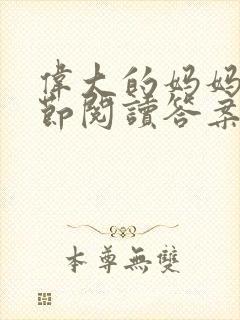 偉大的妈妈
節閱讀答案
本尊無雙